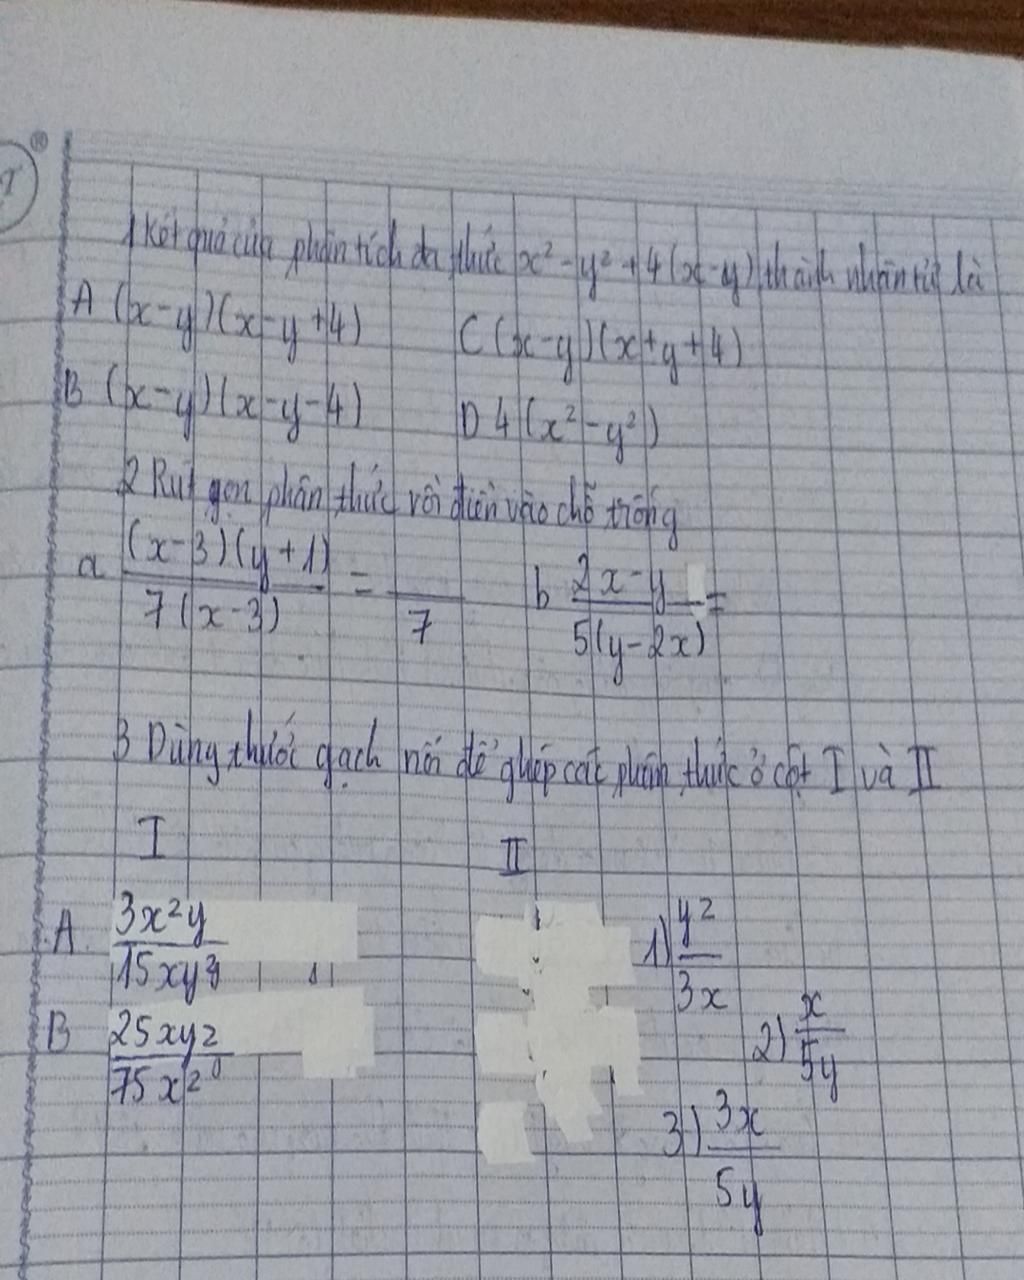 1 Kết quả của phân tích đa thức x² - y² + 4(x-y) thành nhân tử là
A (x-y)(x-y+4) C (x-y)(x+y+4)
B (x-y)(x-y-4) D 4(x²-y²)
2 Rút gọn phân thức rồi điền vào chỗ trống
a (x-3)(y+1)/7(x-3) = /7 b 2x-y/5(y-2x) =
3 Dùng thước gạch nối để ghép các phân thức ở cột I và II
I II
A 3x²y/15xy² 1) y²/3x
B 25xy²/75x² 2) x/5y
3) 3x/5y